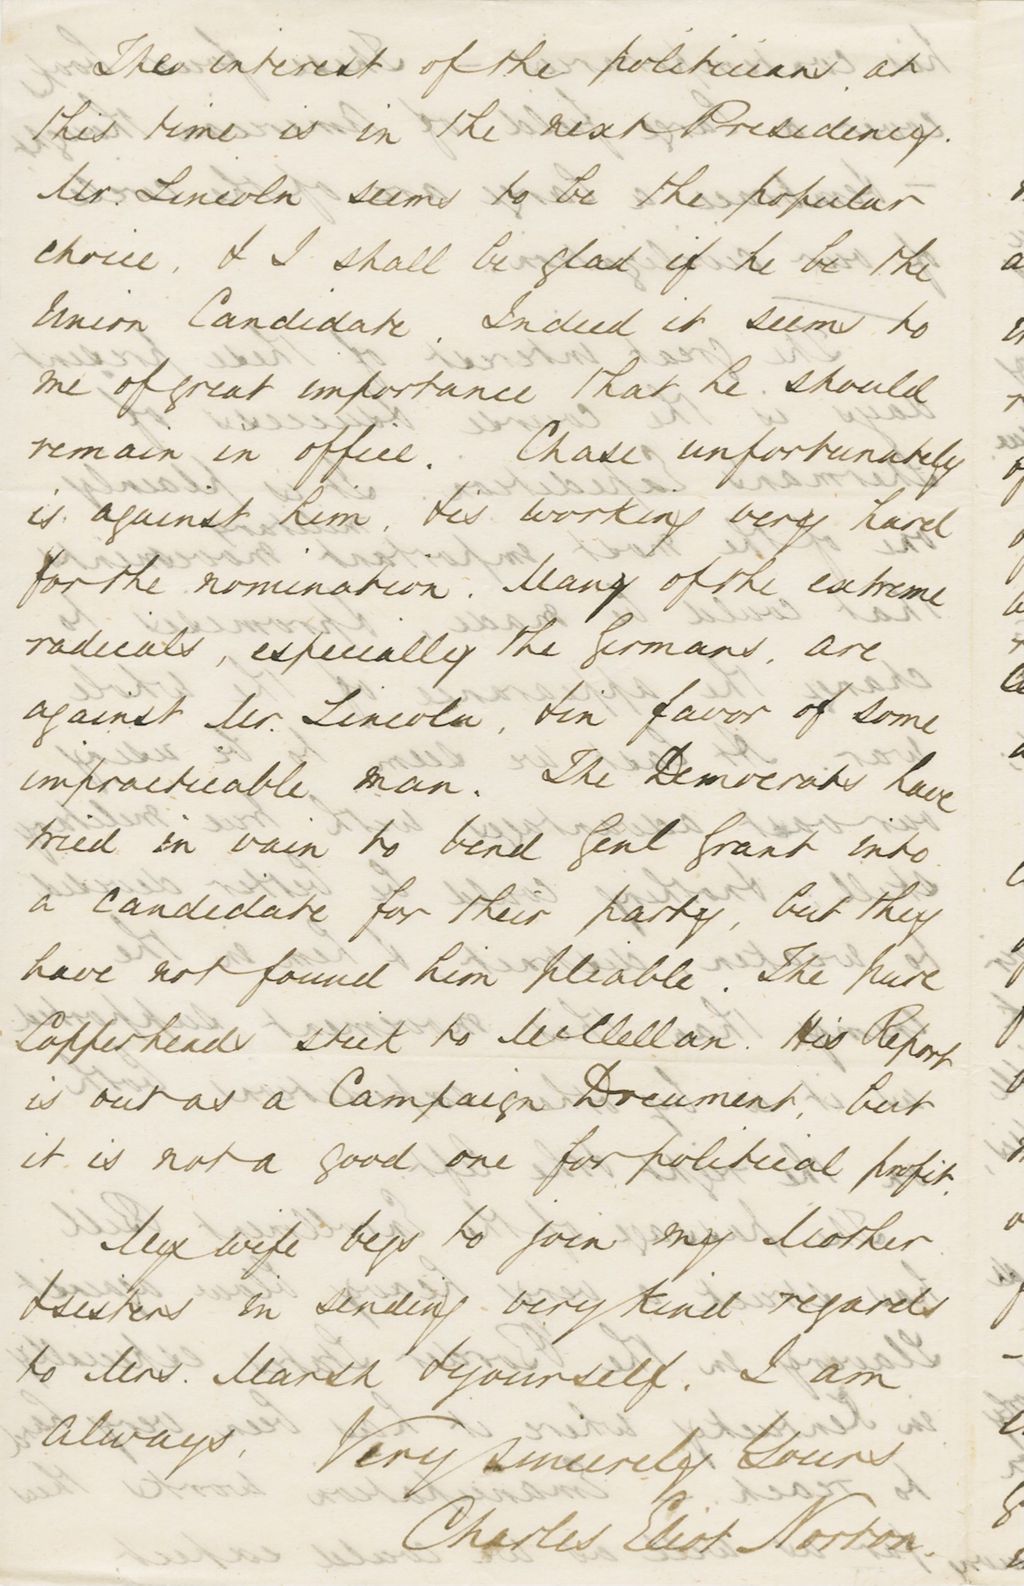 The interest of the politicians at
this time is in the next Presidency.
Mr. Lincoln seems to be the popular
choice, & I shall be glad if he be the
Union Candidate. Indeed it seems to
me of great importance that he should
remain in office. Chase unfortunately
is against him, & is working very hard
for the nomination. Many of the extreme
radicals, especially the Germans, are
against Mr. Lincoln, & in favor of some
impracticable man. The Democrats have
tried in vain to bend Genl Grant into
a candidate for their party, but they
have not found him pliable. The pure
Copperheads stick to McClellan. His Report
is out as a Campaign Document, but
it is not a good one for political profit.
My wife begs to join my Mother
& sisters in sending very kind regards
to Mrs. Marsh & yourself. I am
always, Very sincerely Yours
Charles Eliot Norton.